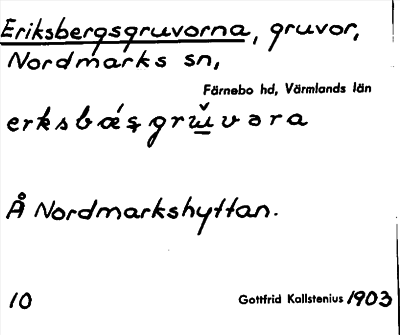 Eriksbergsgruvorna, gruvor,
Nordmarks sn,
Färnebo hd, Värmlands län
Å Nordmarkshyttan.
10
Gottfrid Kallstenius 1903